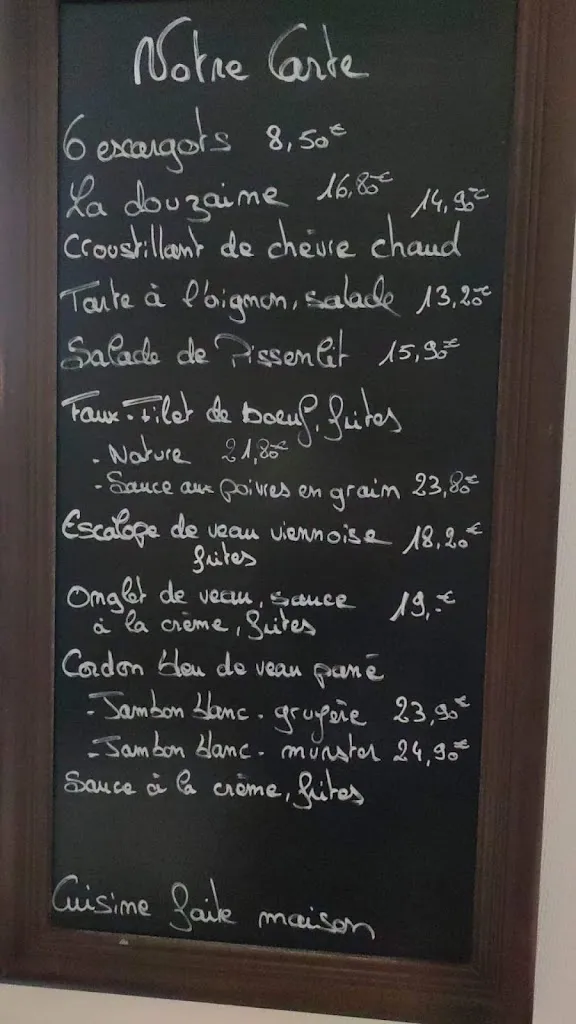 Notre Carte
6 escargots 8,50€
La douzaine 16,80€
14,90€
Croustillant de chèvre chaud
Tarte à l'oignon, salade 13,20€
Salade de Pissenlit 15,90€
Faux-Filet de boeuf, frites
- Nature 21,80€
- Sauce aux poivres en grain 23,80€
Escalope de veau viennoise 18,20€
frites
Onglet de veau, sauce 19,-€
à la crème, frites
Cordon bleu de veau pané
- Jambon blanc - gruyère 23,90€
- Jambon blanc - munster 24,90€
Sauce à la crème, frites
Cuisine faite maison